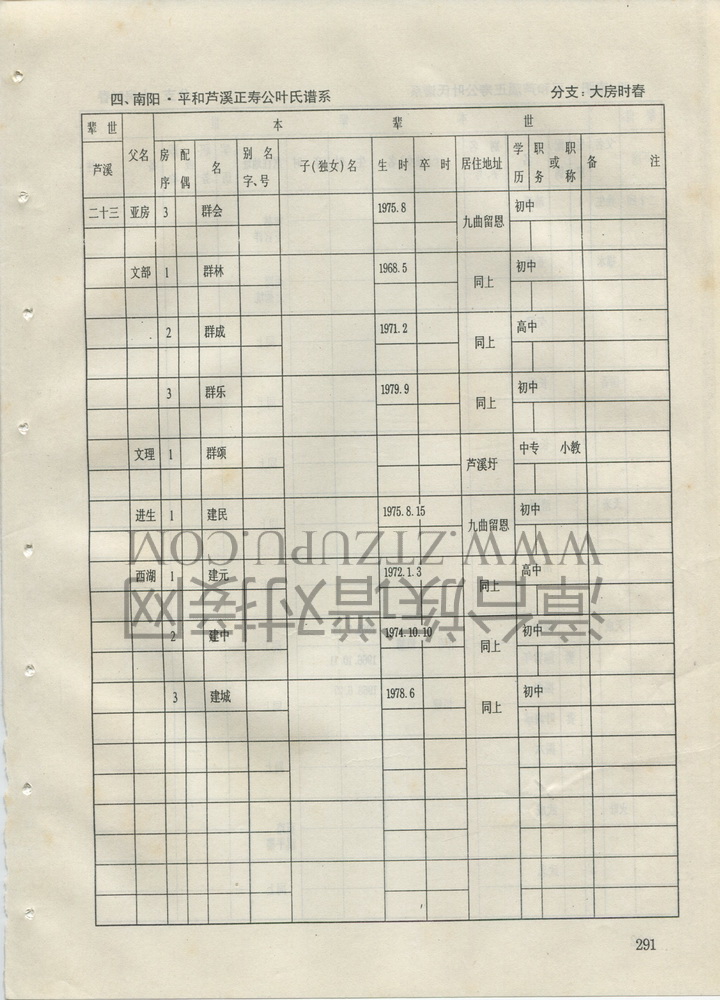 四、南阳·平和芦溪正寿公叶氏谱系 分支：大房时春
辈世 本 辈 世
芦溪 父名 房序 配偶 名 别名字、号 子(独女)名 生时 卒时 居住地址 学历 职务或职称 备注
二十三 亚房 3 群会 1975.8 九曲留恩 初中
文部 1 群林 1968.5 同上 初中
2 群成 1971.2 同上 高中
3 群乐 1979.9 同上 初中
文理 1 群颂 芦溪圩 中专 小教
进生 1 建民 1975.8.15 九曲留恩 初中
WWW.ZTZUPU.COM
西湖 1 建元 1972.1.3 同上 高中
漳台族谱对接网
2 建中 1974.10.10 同上 初中
3 建城 1978.6 同上 初中
291